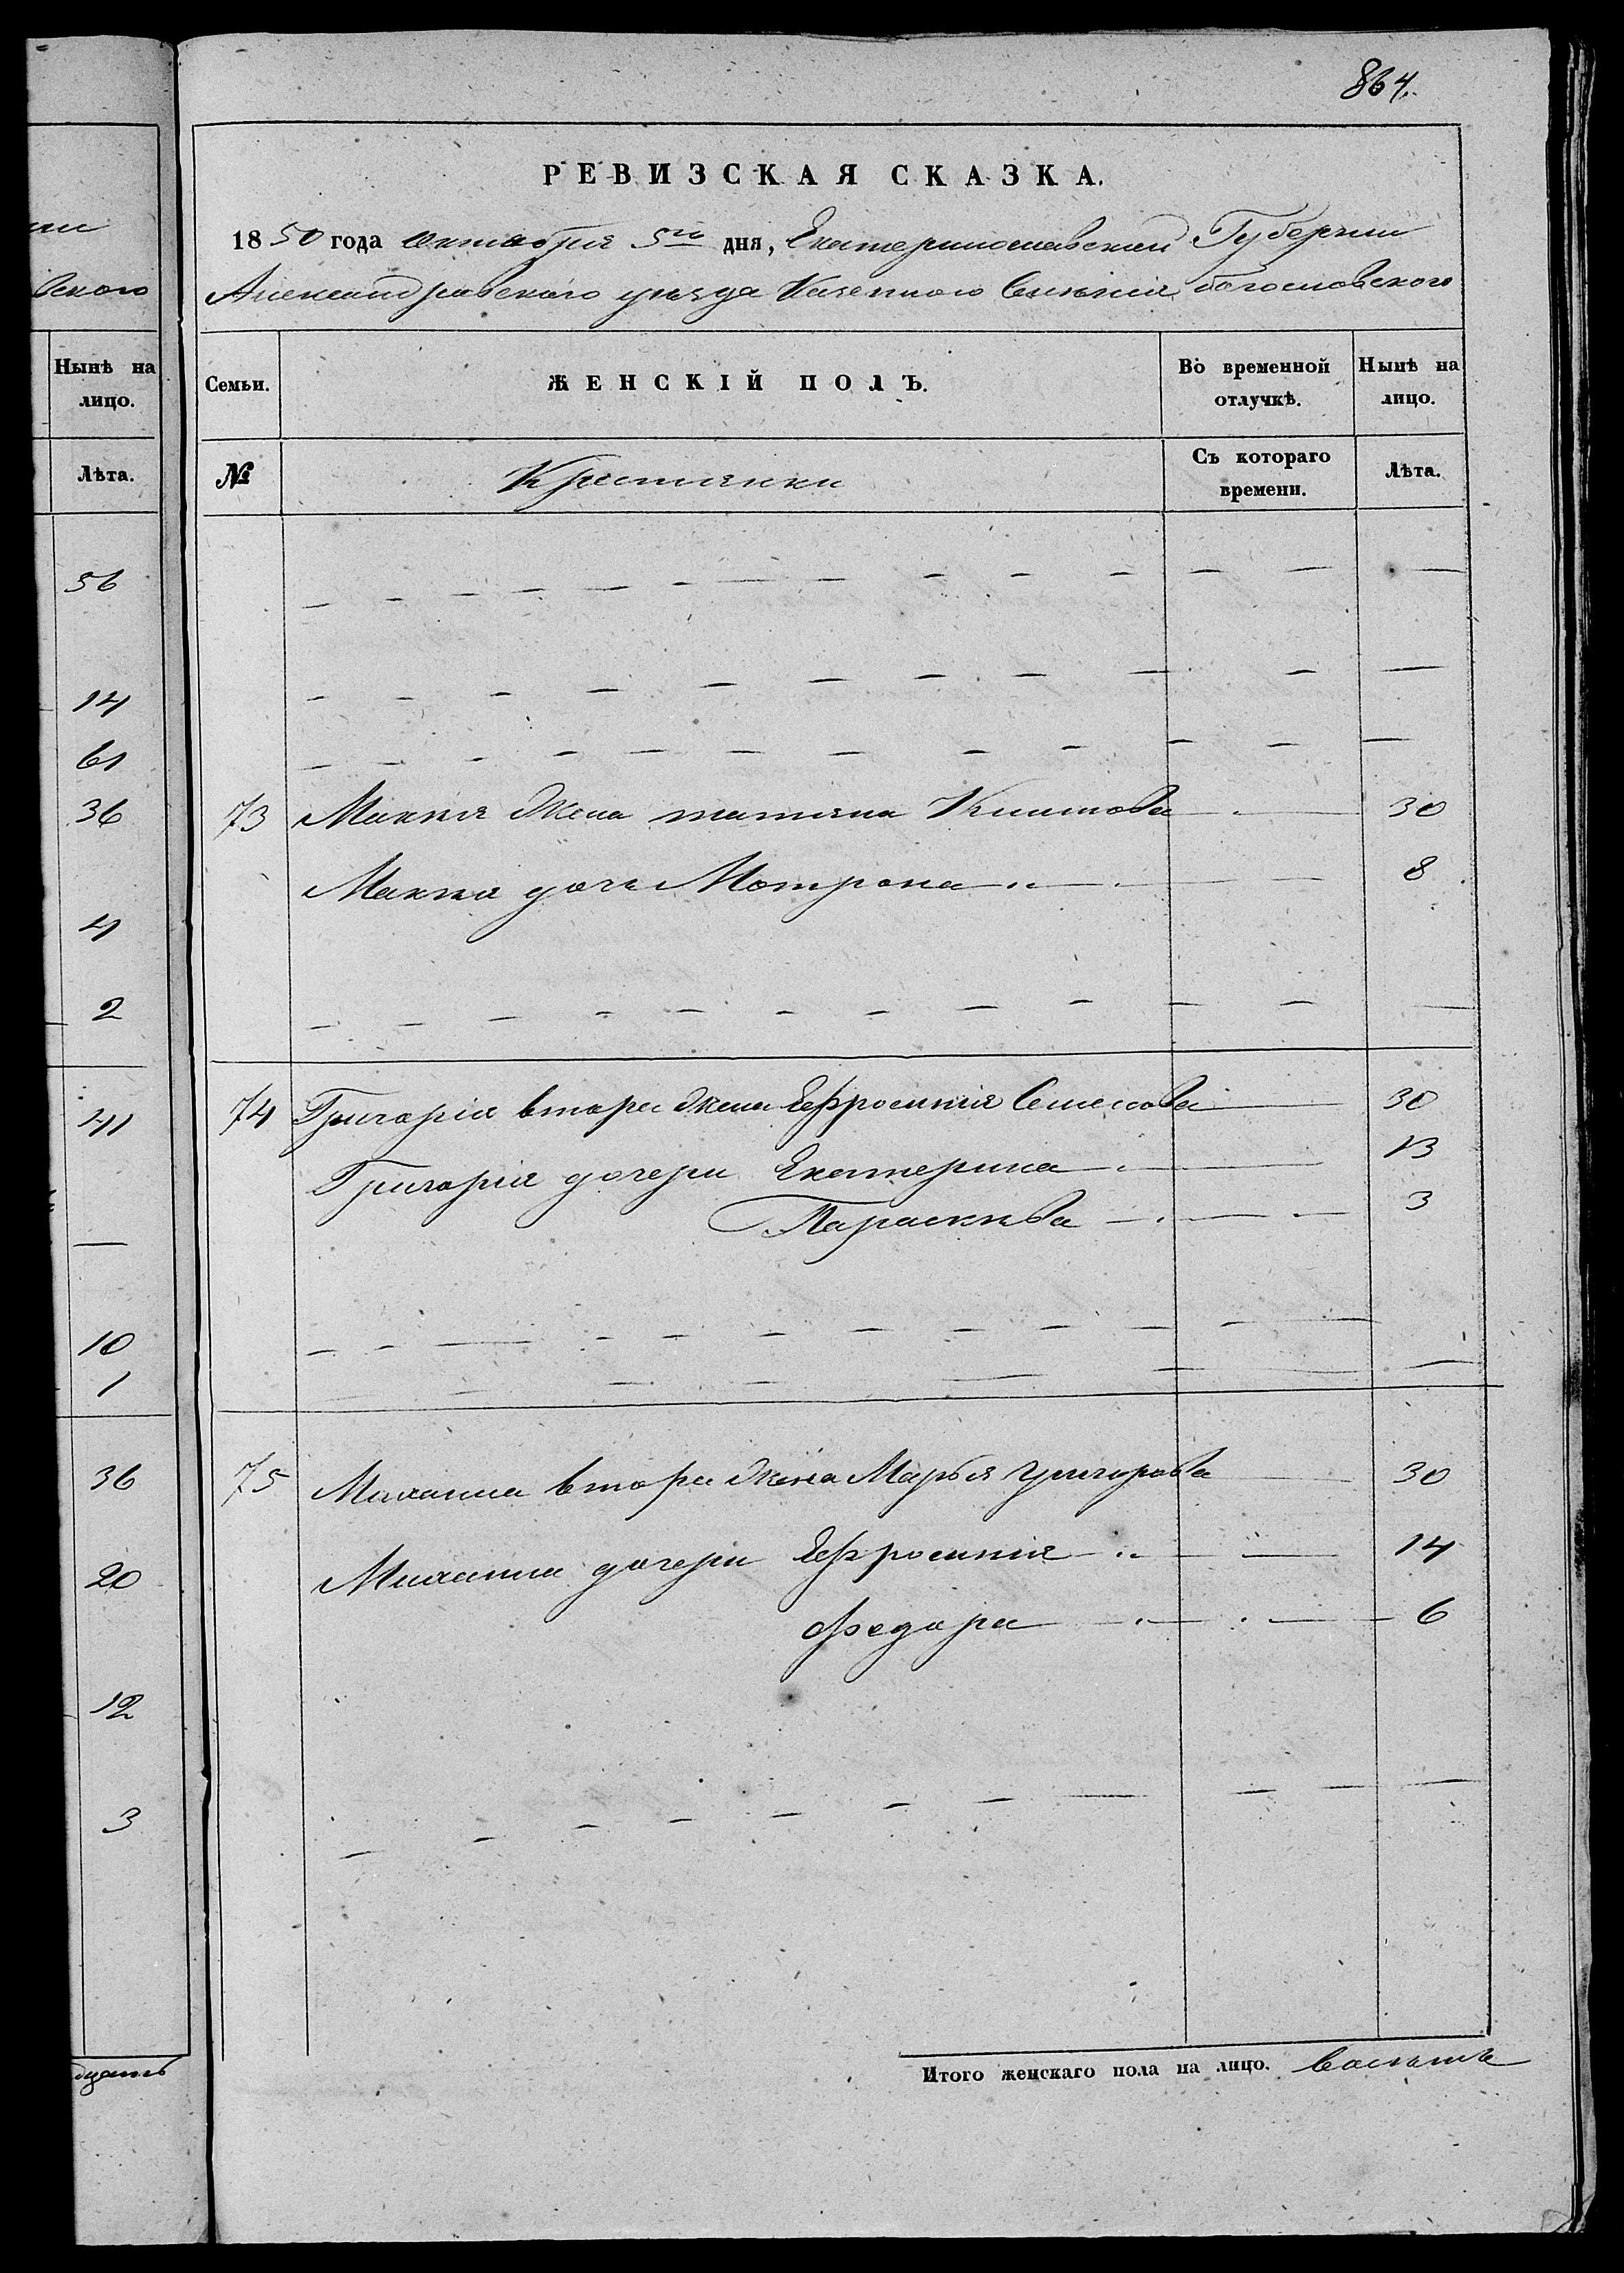 864.
РЕВИЗСКАЯ СКАЗКА.
1850 года октября 5го дня, Екатеринославской Губернии
Александровского уезда Казенного Селения Богословского
ского
Нынѣ на лицо.
Лѣта.
56
14
61
36
4
2
41
—
10
1
36
20
12
3
дцать
Семьи.
ЖЕНСКІЙ ПОЛЪ.
Во временной отлучкѣ.
Нынѣ на лицо.
№
Крестянки
Съ котораго времени.
Лѣта.
73 Макия жена татяна Климова 30
Макия дочь Мотрона 8
74 Григорія втора жена Ефросинія Семенова 30
Григорія дочери Екатерина 13
Параскива 3
75 Михаила втора жена Марья Григорова 30
Михаила дочери Ефросинія 14
Федора 6
Итого женскаго пола на лицо. восемь